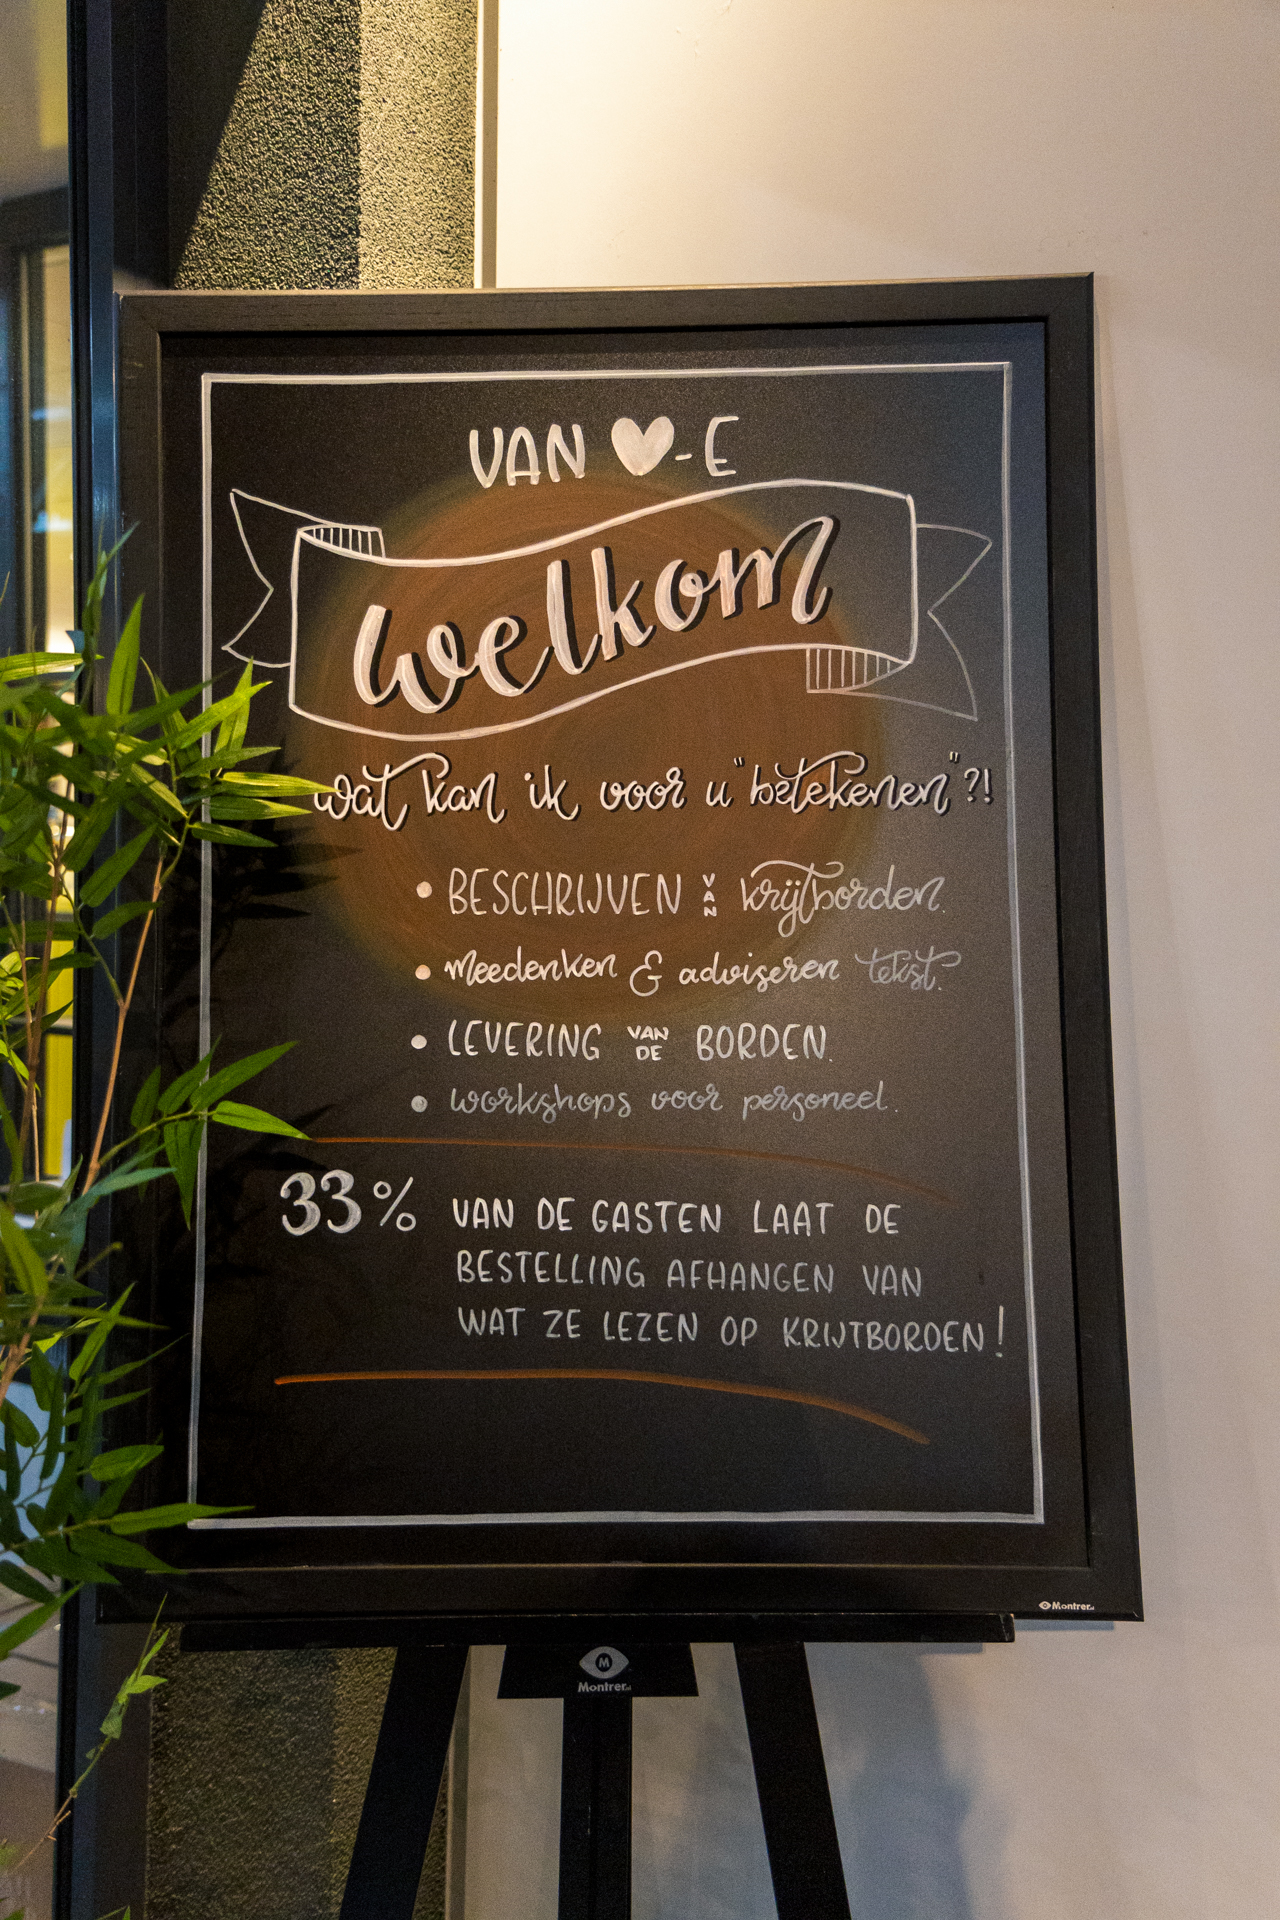 VAN ♥-E
welkom
wat kan ik voor u "betekenen"?!
• BESCHRIJVEN VAN krijtborden.
• meedenken & adviseren tekst.
• LEVERING VAN DE BORDEN.
• workshops voor personeel.
33% VAN DE GASTEN LAAT DE
BESTELLING AFHANGEN VAN
WAT ZE LEZEN OP KRIJTBORDEN!
Montrer.nl
M
Montrer.nl